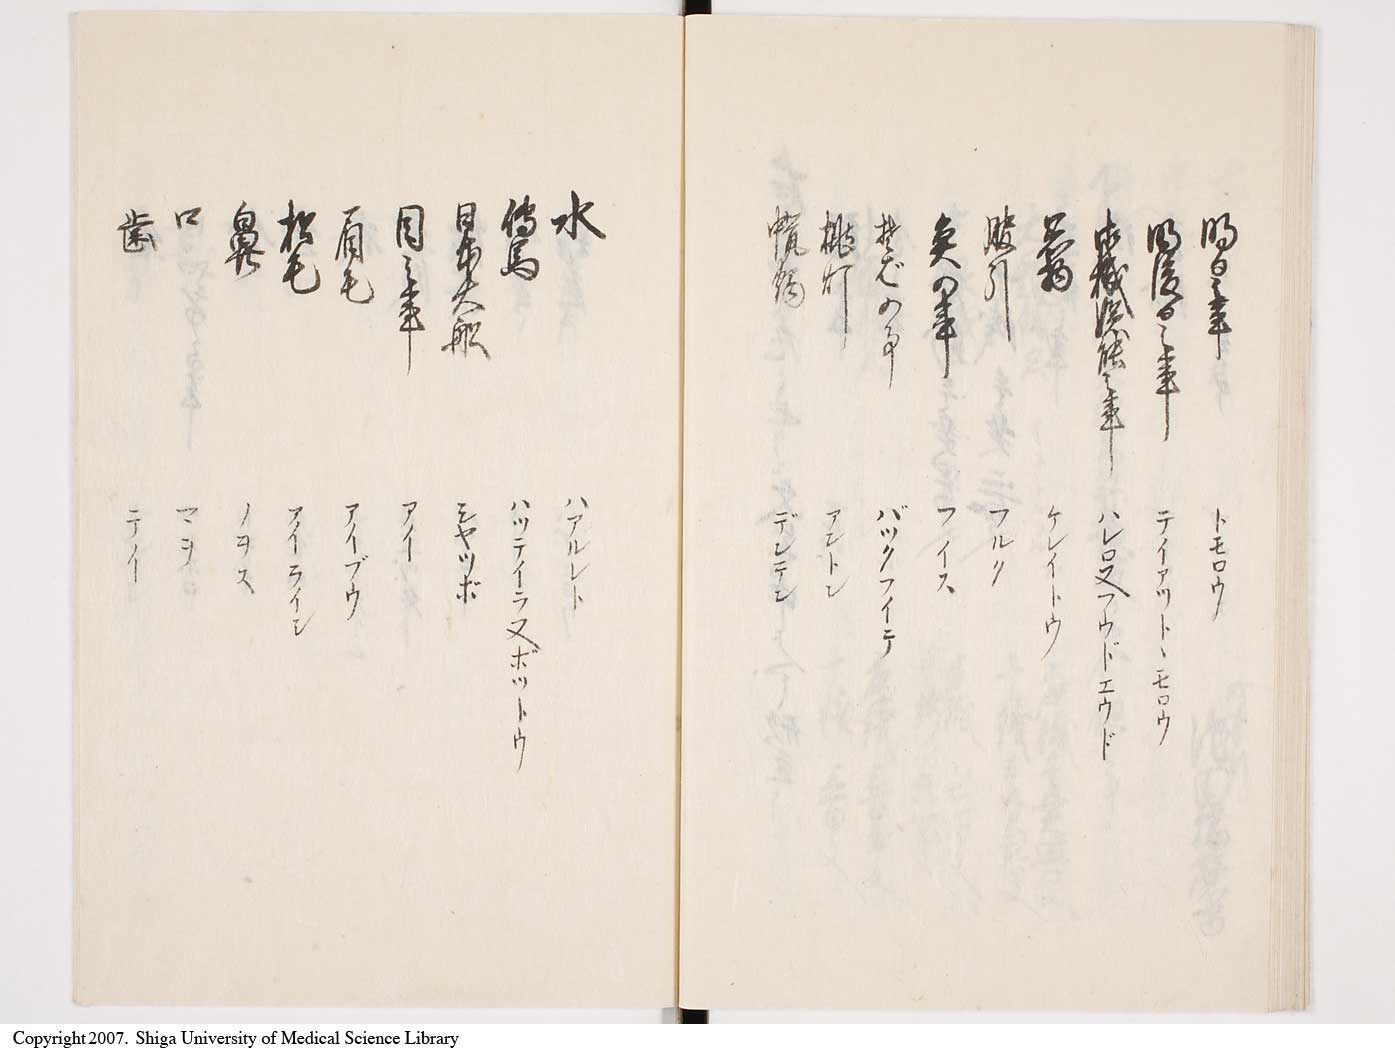 明日之事 トモロウ
明後日之事 テイアツトヽモロウ
ハレロ又フウドエウド
ケレイトウ
股引 フルク
魚の事 フイス
そばの事 バツクフイテ
挑灯 アントン
デンテン
水 ハアルレト
傳馬 ハツテイラ又ボツトウ
日本大船 シヤツボ
目之事 アイ
眉毛 アイブウ
松毛 アイライン
鼻 ノヲス
口 マヲヲ
歯 テイー
Copyright 2007. Shiga University of Medical Science Library